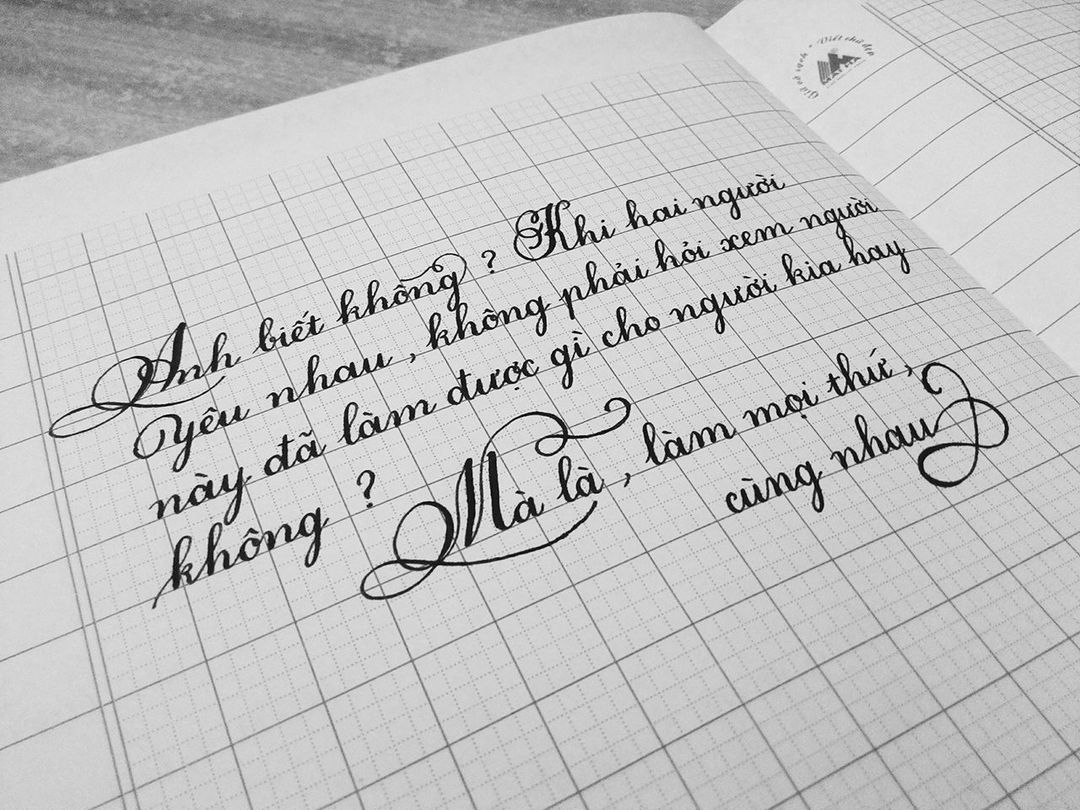 Anh biết không ? Khi hai người
yêu nhau , không phải hỏi xem người
này đã làm được gì cho người kia hay
không ? Mà là , làm mọi thứ ,
cùng nhau
Giữ vở sạch • Viết chữ đẹp